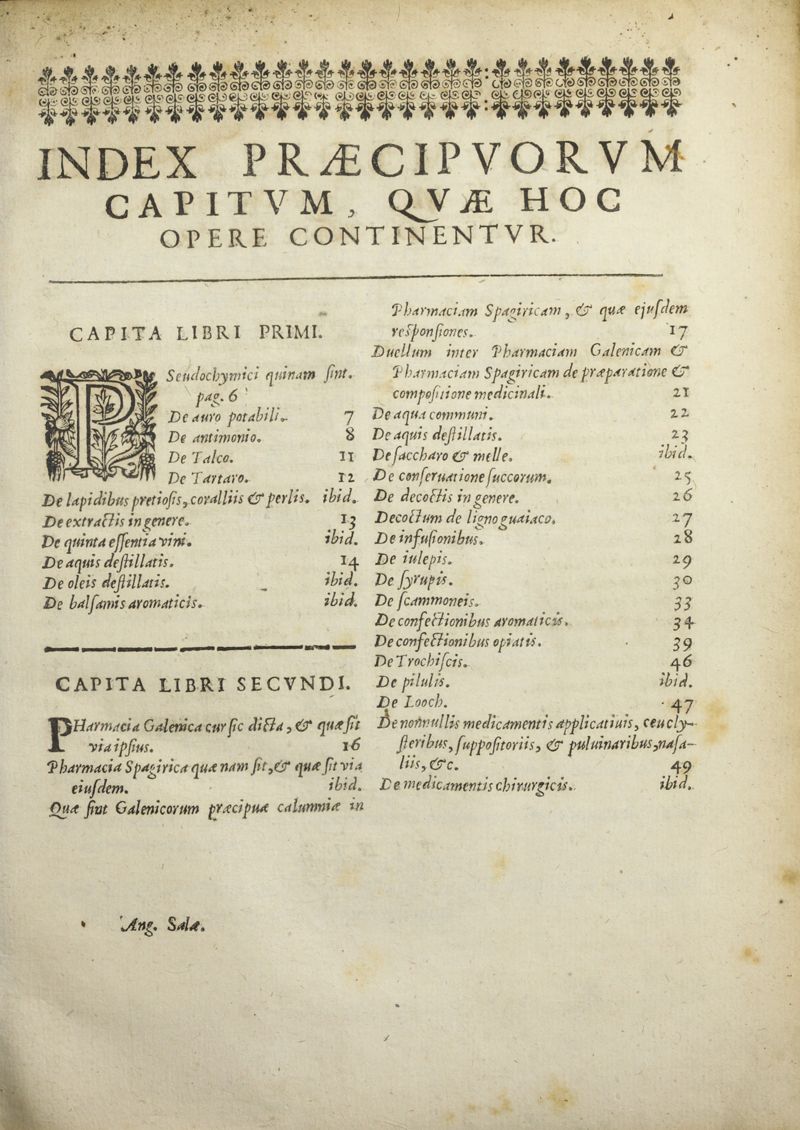 INDEX PRÆCIPVORVM
CAPITVM, QVÆ HOC
OPERE CONTINENTVR.
CAPITA LIBRI PRIMI.
PSeudochymici quinam ſint.
pag. 6
De auro potabili. 7
De antimonio. 8
De Talco. 11
De Tartaro. 12
De lapidibus pretioſis, coralliis & perlis. ibid.
De extractis in genere. 13
De quinta eſſentia vini. ibid.
De aquis deſtillatis. 14
De oleis deſtillatis. ibid.
De balſamis aromaticis. ibid.
CAPITA LIBRI SECVNDI.
PHarmacia Galenica cur ſic dicta, & quæ ſit
via ipſius. 16
Pharmacia Spagirica quænam ſit, & quæ ſit via
eiuſdem. ibid.
Quæ ſint Galenicorum præcipuæ calumniæ in
Pharmaciam Spagiricam, & quæ ejuſdem
reſponſiones. 17
Duellum inter Pharmaciam Galenicam &
Pharmaciam Spagiricam de præparatione &
compoſitione medicinali. 21
De aqua communi. 22
De aquis deſtillatis. 23
De ſaccharo & melle. ibid.
De conſeruatione ſuccorum. 25
De decoctis in genere. 26
Decoctum de ligno guaiaco. 27
De infuſionibus. 28
De iulepis. 29
De ſyrupis. 30
De ſcammoneis. 33
De confectionibus aromaticis. 34
De confectionibus opiatis. 39
De Trochiſcis. 46
De pilulis. ibid.
De Looch. 47
De nonnullis medicamentis applicatiuis, ceu cly-
ſteribus, ſuppoſitoriis, & puluinaribus, naſa-
liis, &c. 49
De medicamentis chirurgicis. ibid.
Ang. Salæ.